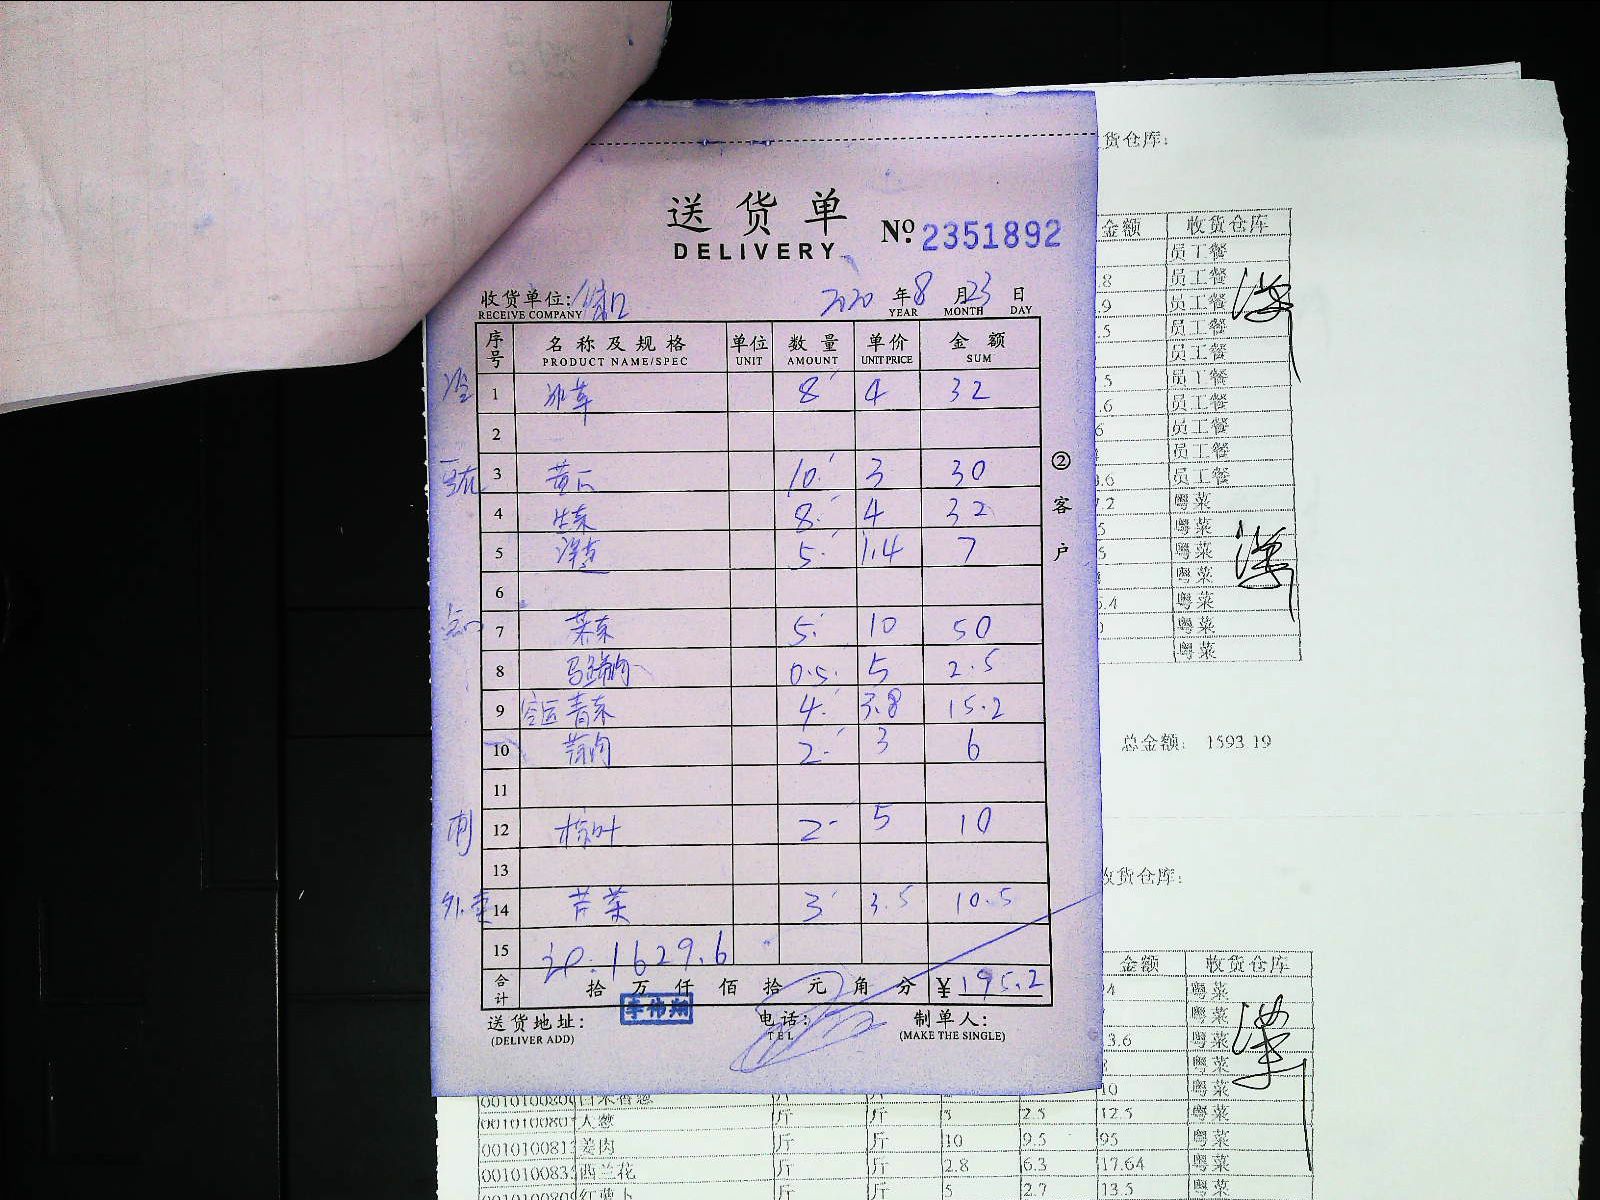 送货单
DELIVERY
No. 2351892
收货单位:
RECEIVE COMPANY
2020 年 8 月 23 日
YEAR MONTH DAY
序号 名称及规格 单位 数量 单价 金额
PRODUCT NAME/SPEC UNIT AMOUNT UNIT PRICE SUM
冷 1 冰草 8 4 32
2
3 黄瓜 10 3 30
4 生菜 8 4 32
5 洋葱 5 1.4 7
6
点 7 菜心 5 10 50
8 马蹄肉 0.5 5 2.5
9 青菜 4 3.8 15.2
10 2 3 6
11
刺 12 2 5 10
13
外卖 14 芹菜 3 3.5 10.5
15 1629.6
合计 拾 万 仟 佰 拾 元 角 分 ¥ 195.2
李伟翔
送货地址: 电话: 制单人:
(DELIVER ADD) TEL (MAKE THE SINGLE)
②客户
货仓库:
金额 收货仓库
员工餐
.8 员工餐
.9 员工餐
.5 员工餐
员工餐
.5 员工餐
.6 员工餐
6 员工餐
员工餐
.6 员工餐
.2 粤菜
5 粤菜
粤菜
粤菜
.4 粤菜
粤菜
粤菜
总金额: 1593.19
收货仓库:
金额 收货仓库
4 粤菜
粤菜
3.6 粤菜
粤菜
斤 斤 10 粤菜
斤 斤 5 2.5 12.5 粤菜
姜肉 斤 斤 10 9.5 95 粤菜
西兰花 斤 斤 2.8 6.3 17.64 粤菜
红萝卜 斤 斤 5 2.7 13.5 粤菜